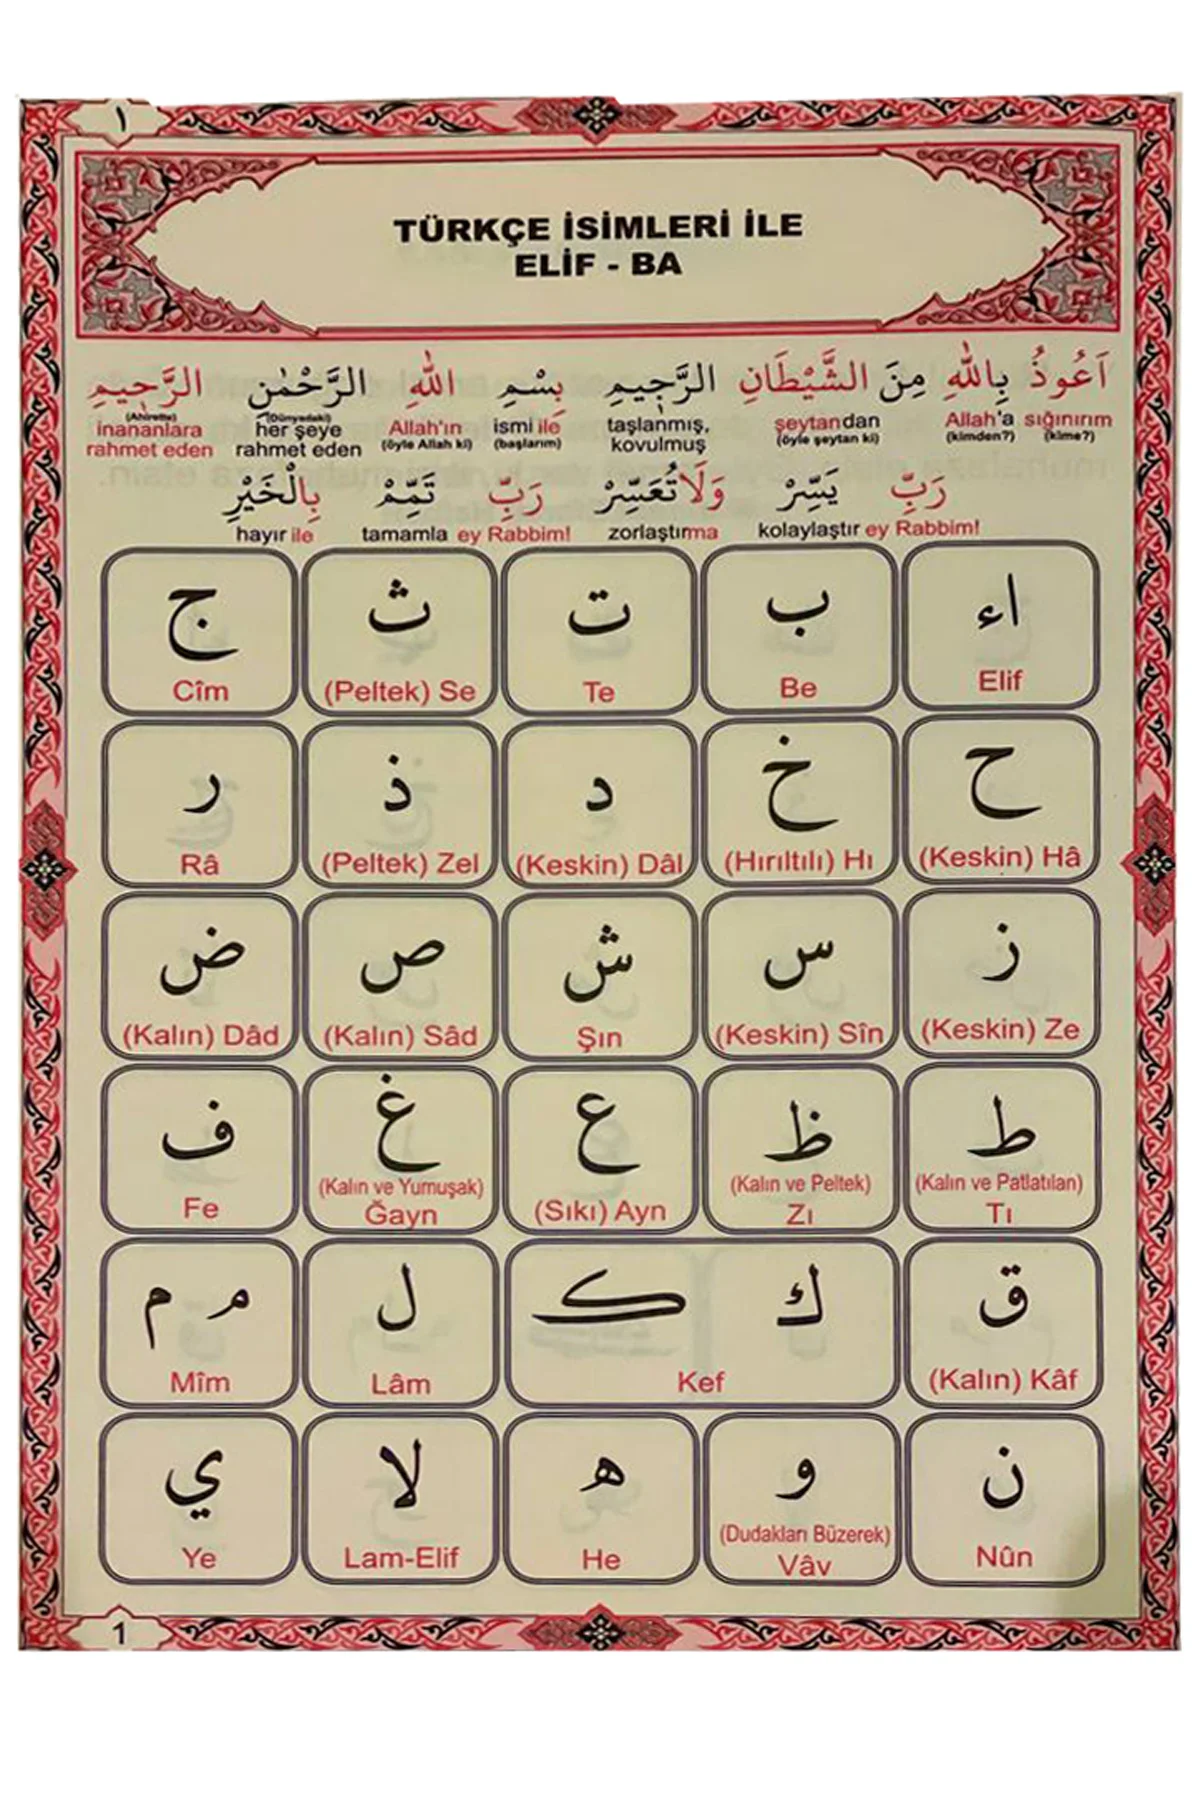 ١
TÜRKÇE İSİMLERİ İLE
ELİF - BA
اَعُوذُ بِاللّٰهِ مِنَ الشَّيْطَانِ الرَّجِيمِ بِسْمِ اللّٰهِ الرَّحْمٰنِ الرَّحِيمِ
sığınırım Allah'a şeytandan taşlanmış, ismi ile Allah'ın (Dünyadaki) (Ahirette)
(kime?) (kimden?) (öyle şeytan ki) kovulmuş (başlarım) (öyle Allah ki) her şeye inananlara
rahmet eden rahmet eden
رَبِّ يَسِّرْ وَلَا تُعَسِّرْ رَبِّ تَمِّمْ بِالْخَيْرِ
kolaylaştır ey Rabbim! zorlaştırma tamamla ey Rabbim! hayır ile
ا ء ب ت ث ج
Elif Be Te (Peltek) Se Cîm
ح خ د ذ ر
(Keskin) Hâ (Hırıltılı) Hı (Keskin) Dâl (Peltek) Zel Râ
ز س ش ص ض
(Keskin) Ze (Keskin) Sîn Şın (Kalın) Sâd (Kalın) Dâd
ط ظ ع غ ف
(Kalın ve Patlatılan) (Kalın ve Peltek) (Kalın ve Yumuşak)
Tı Zı (Sıkı) Ayn Ğayn Fe
ق ك ک ل م م
(Kalın) Kâf Kef Lâm Mîm
ن و ه لا ي
(Dudakları Büzerek)
Nûn Vâv He Lam-Elif Ye
1